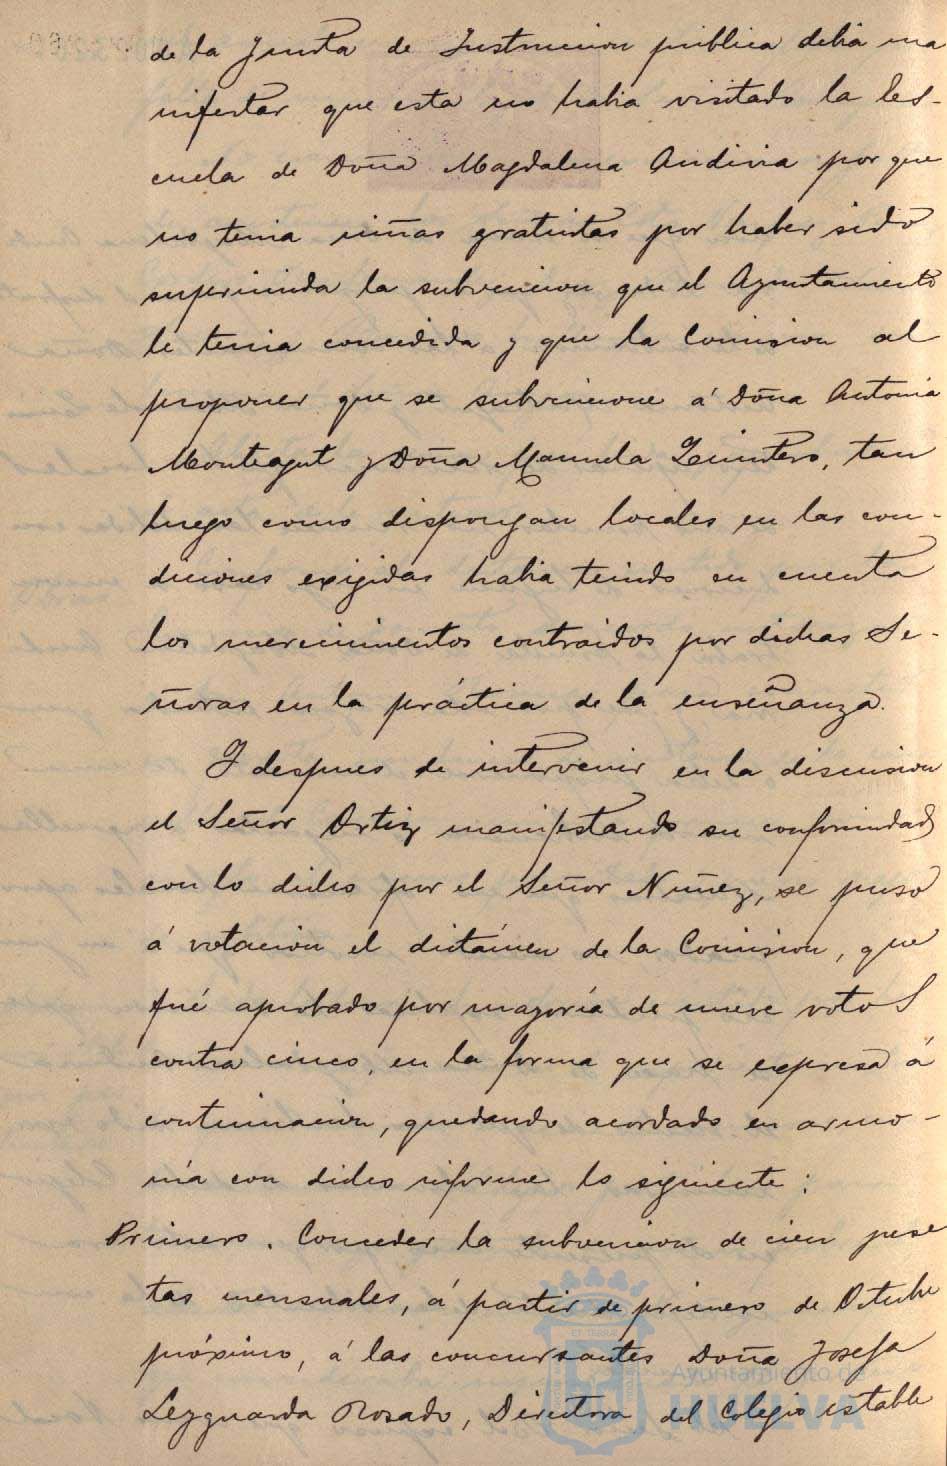 de la Junta de Instruccion pública debia ma
nifestar que esta no habia visitado la Es-
cuela de Doña Magdalena Andivia por que
no tenia niñas gratuitas por haber sido
suprimida la subvencion que el Ayuntamiento
le tenia concedida y que la Comision al
proponer que se subvencione á Doña Antonia
Monteagut y Doña Manuela Quintero, tan
luego como dispongan locales en las con-
diciones exigidas habia tenido en cuenta
los merecimientos contraidos por dichas Se-
ñoras en la práctica de la enseñanza.
Y despues de intervenir en la discusion
el Señor Ortiz manifestando su conformidad
con lo dicho por el Señor Nuñez, se puso
á votacion el dictámen de la Comision, que
fué aprobado por mayoría de nueve votos
contra cinco, en la forma que se expresa á
continuacion, quedando acordado en armo-
nía con dicho informe lo siguiente:
Primero. Conceder la subvencion de cien pese
tas mensuales, á partir de primero de Octubre
próximo, á las concursantes Doña Josefa
Leyguarda Rosado, Directora del Colegio estable
Ayuntamiento de
HUELVA